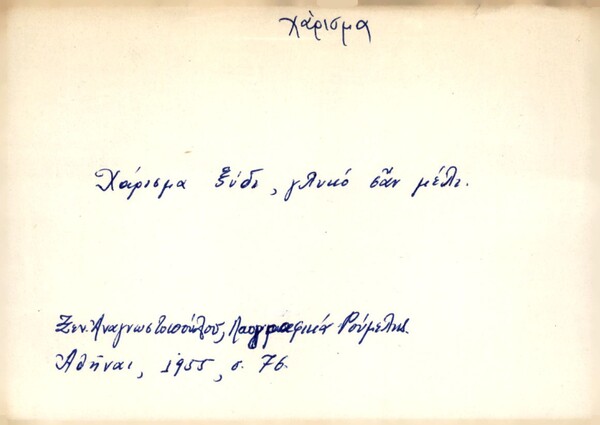 χάρισμα
Χάρισμα ξύδι, γλυκό σἄν μέλι.
Ξεν. Ἀναγνωστοπούλου, Λαογραφικά Ρούμελης.
Ἀθῆναι, 1955, σ. 76.